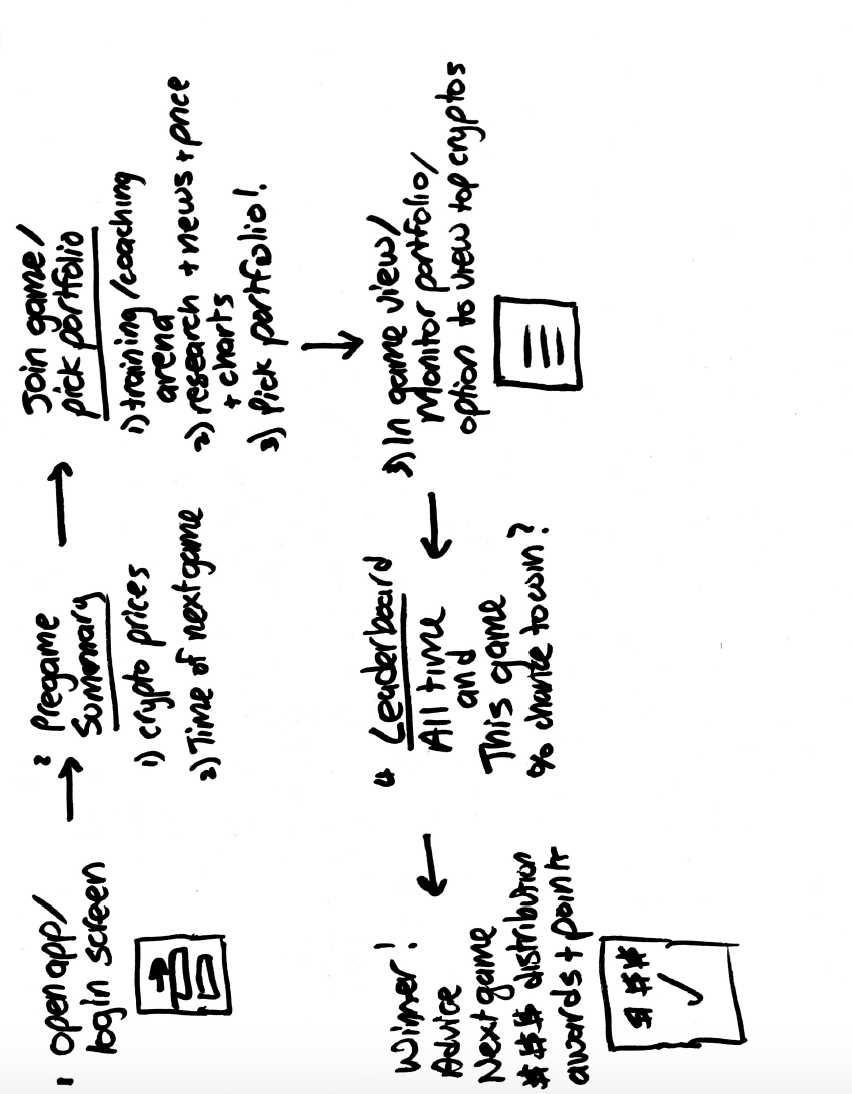 1 open app/
login screen
2 Pregame
Summary
1) crypto prices
2) Time of next game
Join game/
pick portfolio
1) training/coaching
arena
2) research + news + price
+ charts
3) Pick portfolio!
3) In game view/
Monitor portfolio/
option to view top cryptos
4 Leaderboard
All time
and
This game
% chance to win?
Winner!
Advice
Next game
$$$$ distribution
awards + points
$ $$